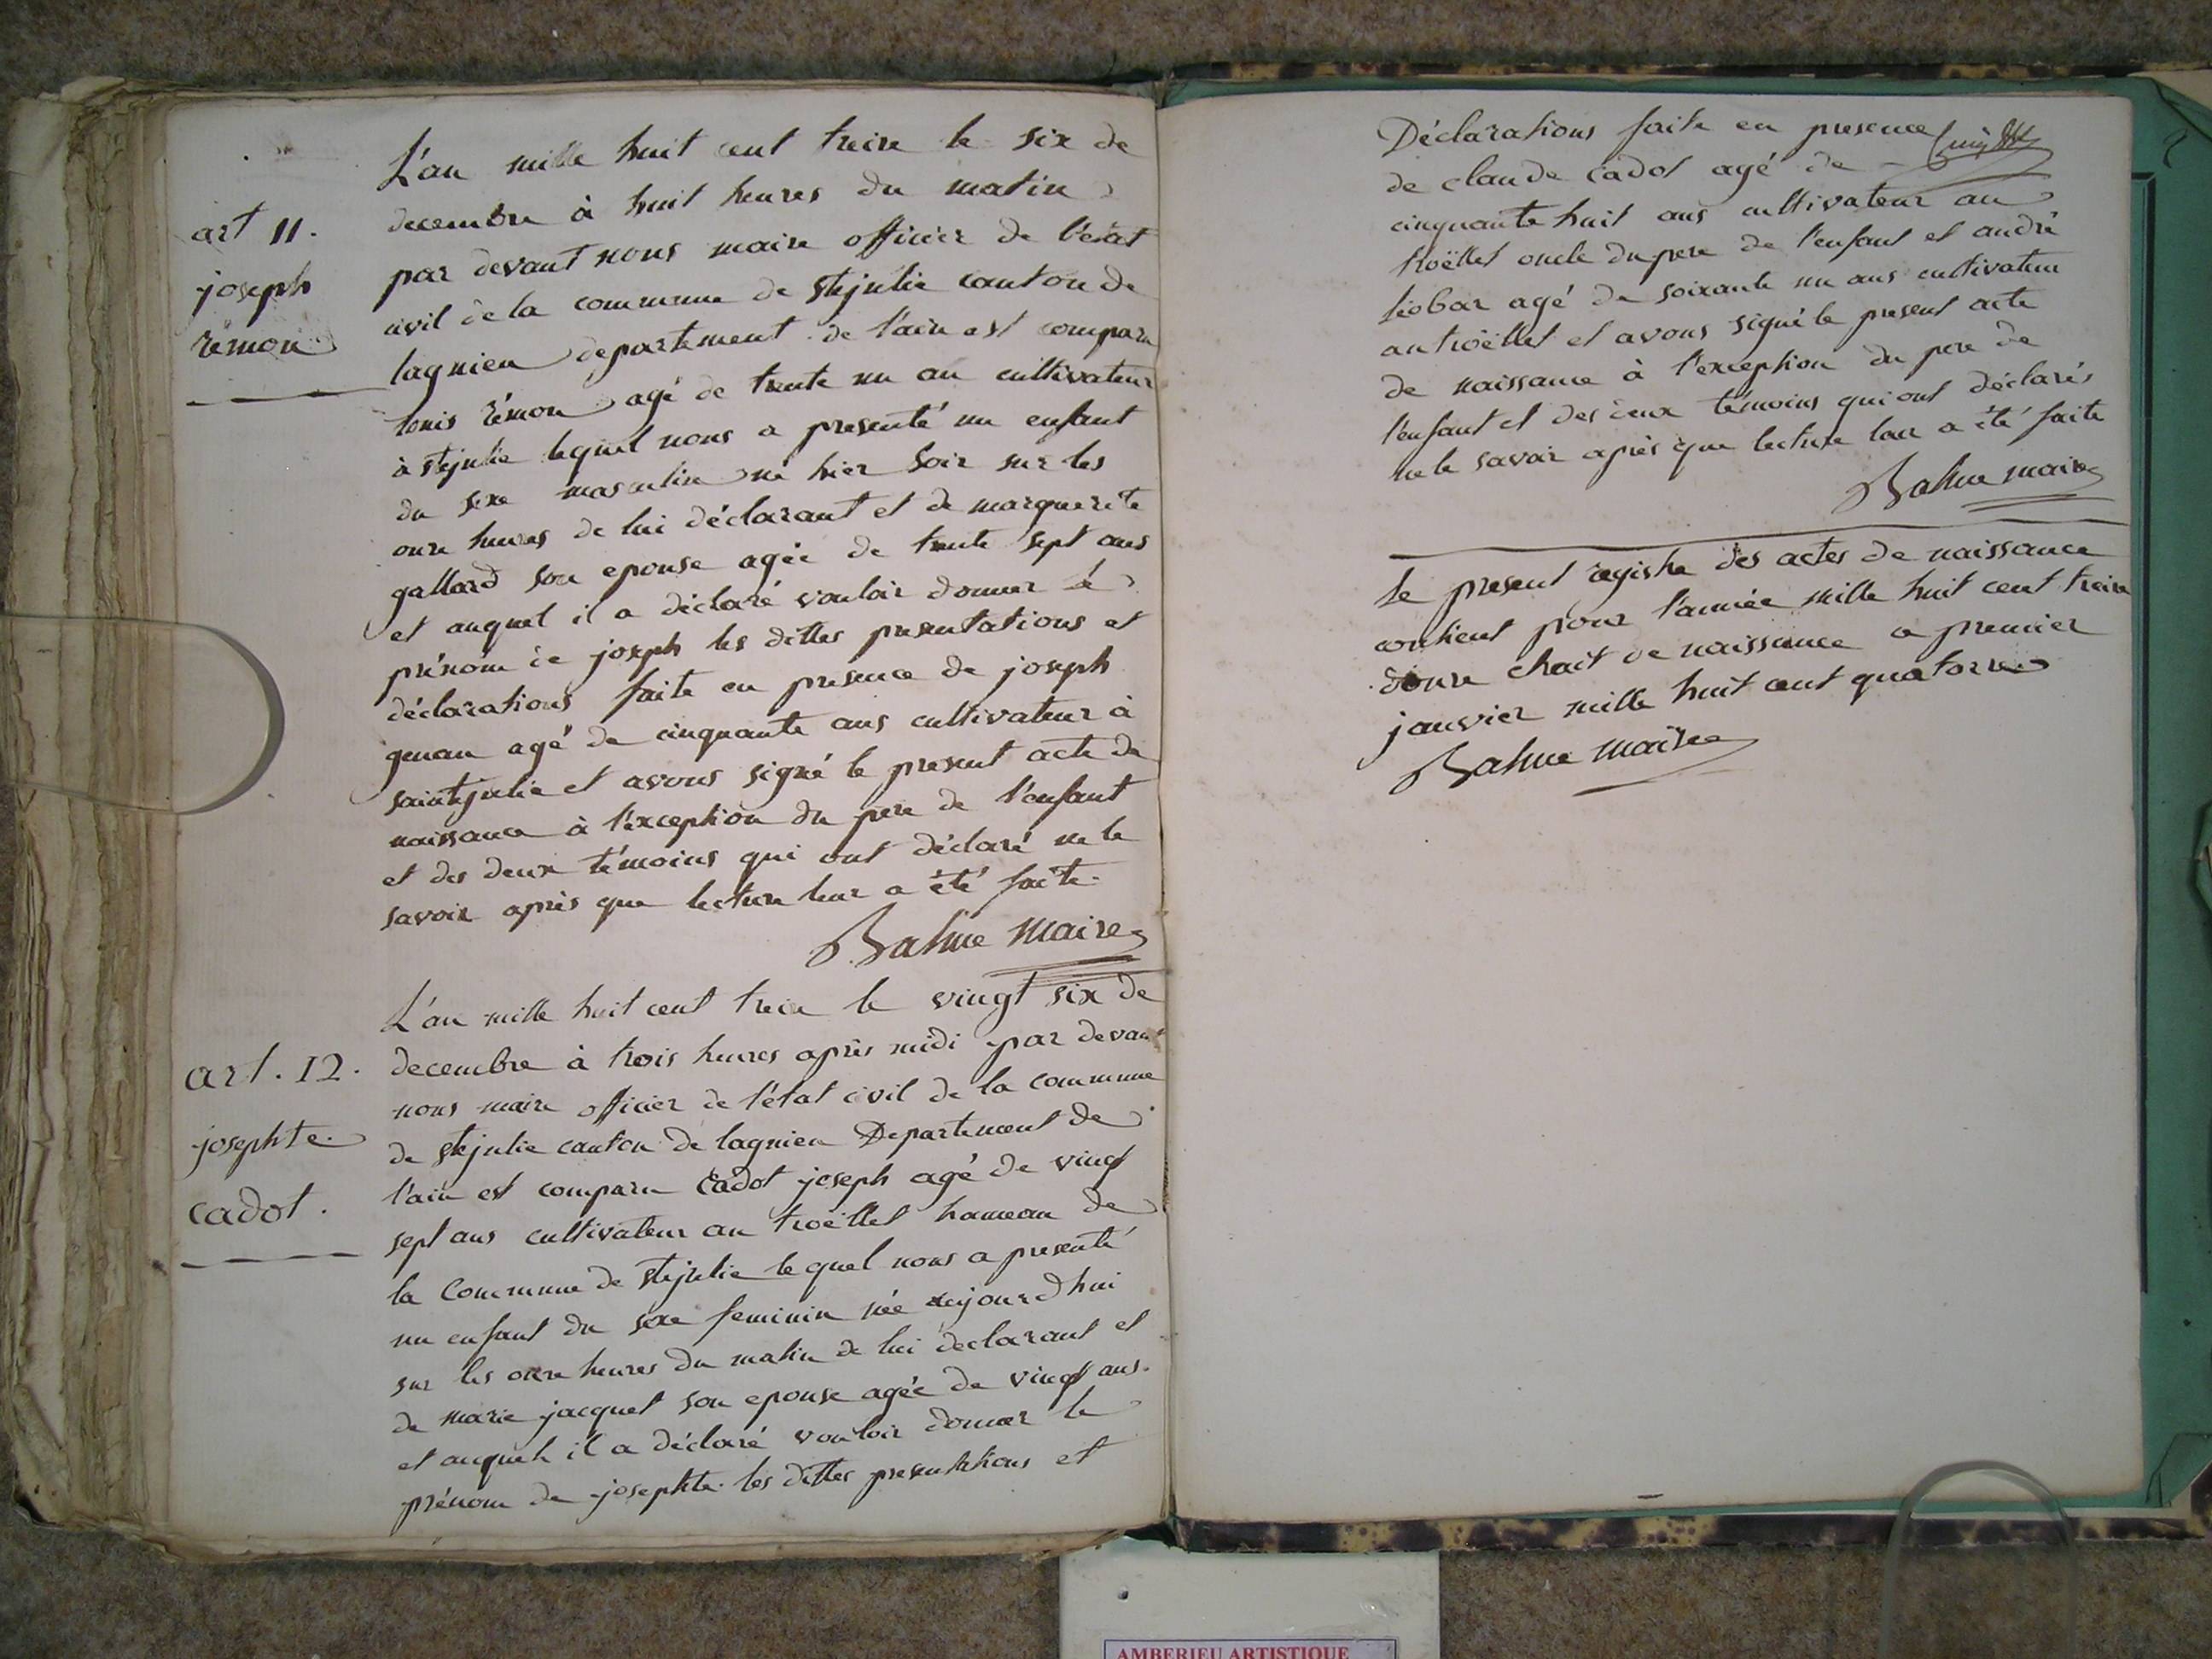 art 11.
joseph
rémon
L'an mille huit cent treize le six de
decembre à huit heures du matin
par devant nous maire officier de l'état
civil de la commune de stejulie canton de
lagnieu departement de l'ain est comparu
louis rémon agé de trente un an cultivateur
à stejulie lequel nous a presenté un enfant
du sexe masculin né hier soir sur les
onze heures de lui déclarant et de marguerite
gallard son epouse agée de trente sept ans
et auquel il a déclaré vouloir donner le
prénom de joseph les dittes presentations et
déclarations faite en présence de joseph
genau agé de cinquante ans cultivateur à
saintejulie et avons signé le present acte de
naissance à l'exception du pere de l'enfant
et des deux témoins qui ont déclaré ne le
savoir après que lecture leur a été faite.
Balme maire
art. 12.
josephte
cadot.
L'an mille huit cent treize le vingt six de
decembre à trois heures après midi par devant
nous maire officier de l'état civil de la commune
de stejulie canton de lagnieu Departement de
l'ain est comparu Cadot joseph agé de vingt
sept ans cultivateur au troëllet hameau de
la Commune de stejulie lequel nous a presenté
un enfant du sexe feminin née aujourdhui
sur les onze heures du matin de lui déclarant et
de marie jacquet son epouse agée de vingt ans.
et auquel il a déclaré vouloir donner le
prénom de josephte les dittes presentations et
Déclarations faite en presence
de claude cadot agé de
cinquante huit ans cultivateur au
troëllet oncle du pere de l'enfant et andré
liobar agé de soixante un ans cultivateur
au troëllet et avons signé le present acte
de naissance à l'exception du pere de
l'enfant et des deux témoins qui ont déclarés
ne le savoir après que lecture leur a été faite
Balme maire
le present registre des actes de naissance
contient pour l'année mille huit cent treize
douze de naissance ce premier
janvier mille huit cent quatorze
Balme maire
AMBERIEU ARTISTIQUE